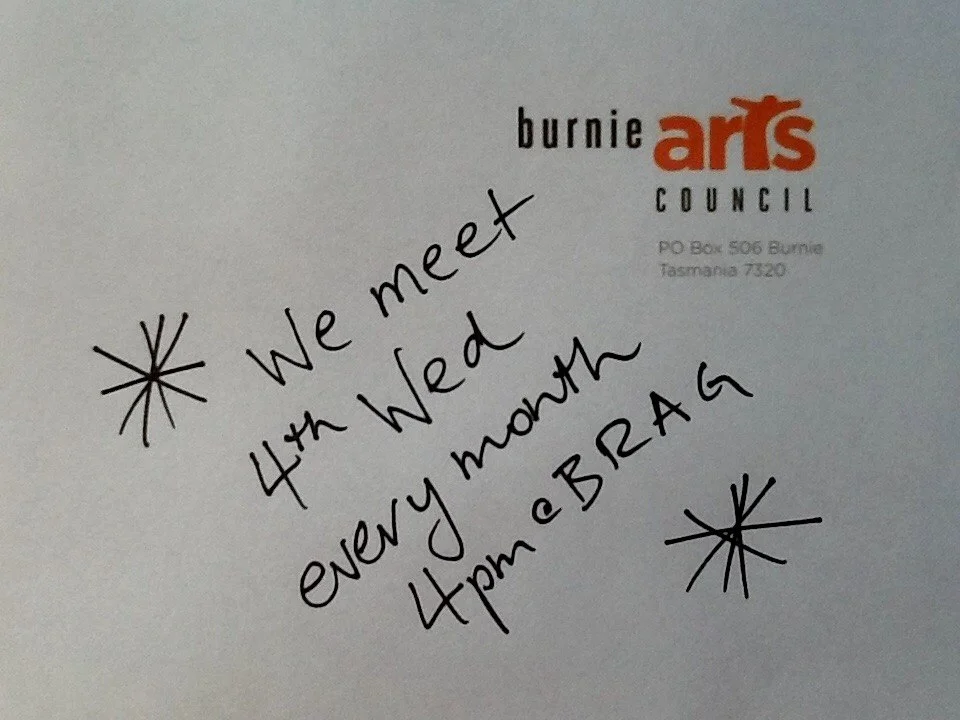 burnie arts
COUNCIL
PO Box 506 Burnie
Tasmania 7320
We meet
4th Wed
every month
4pm @ BRAG